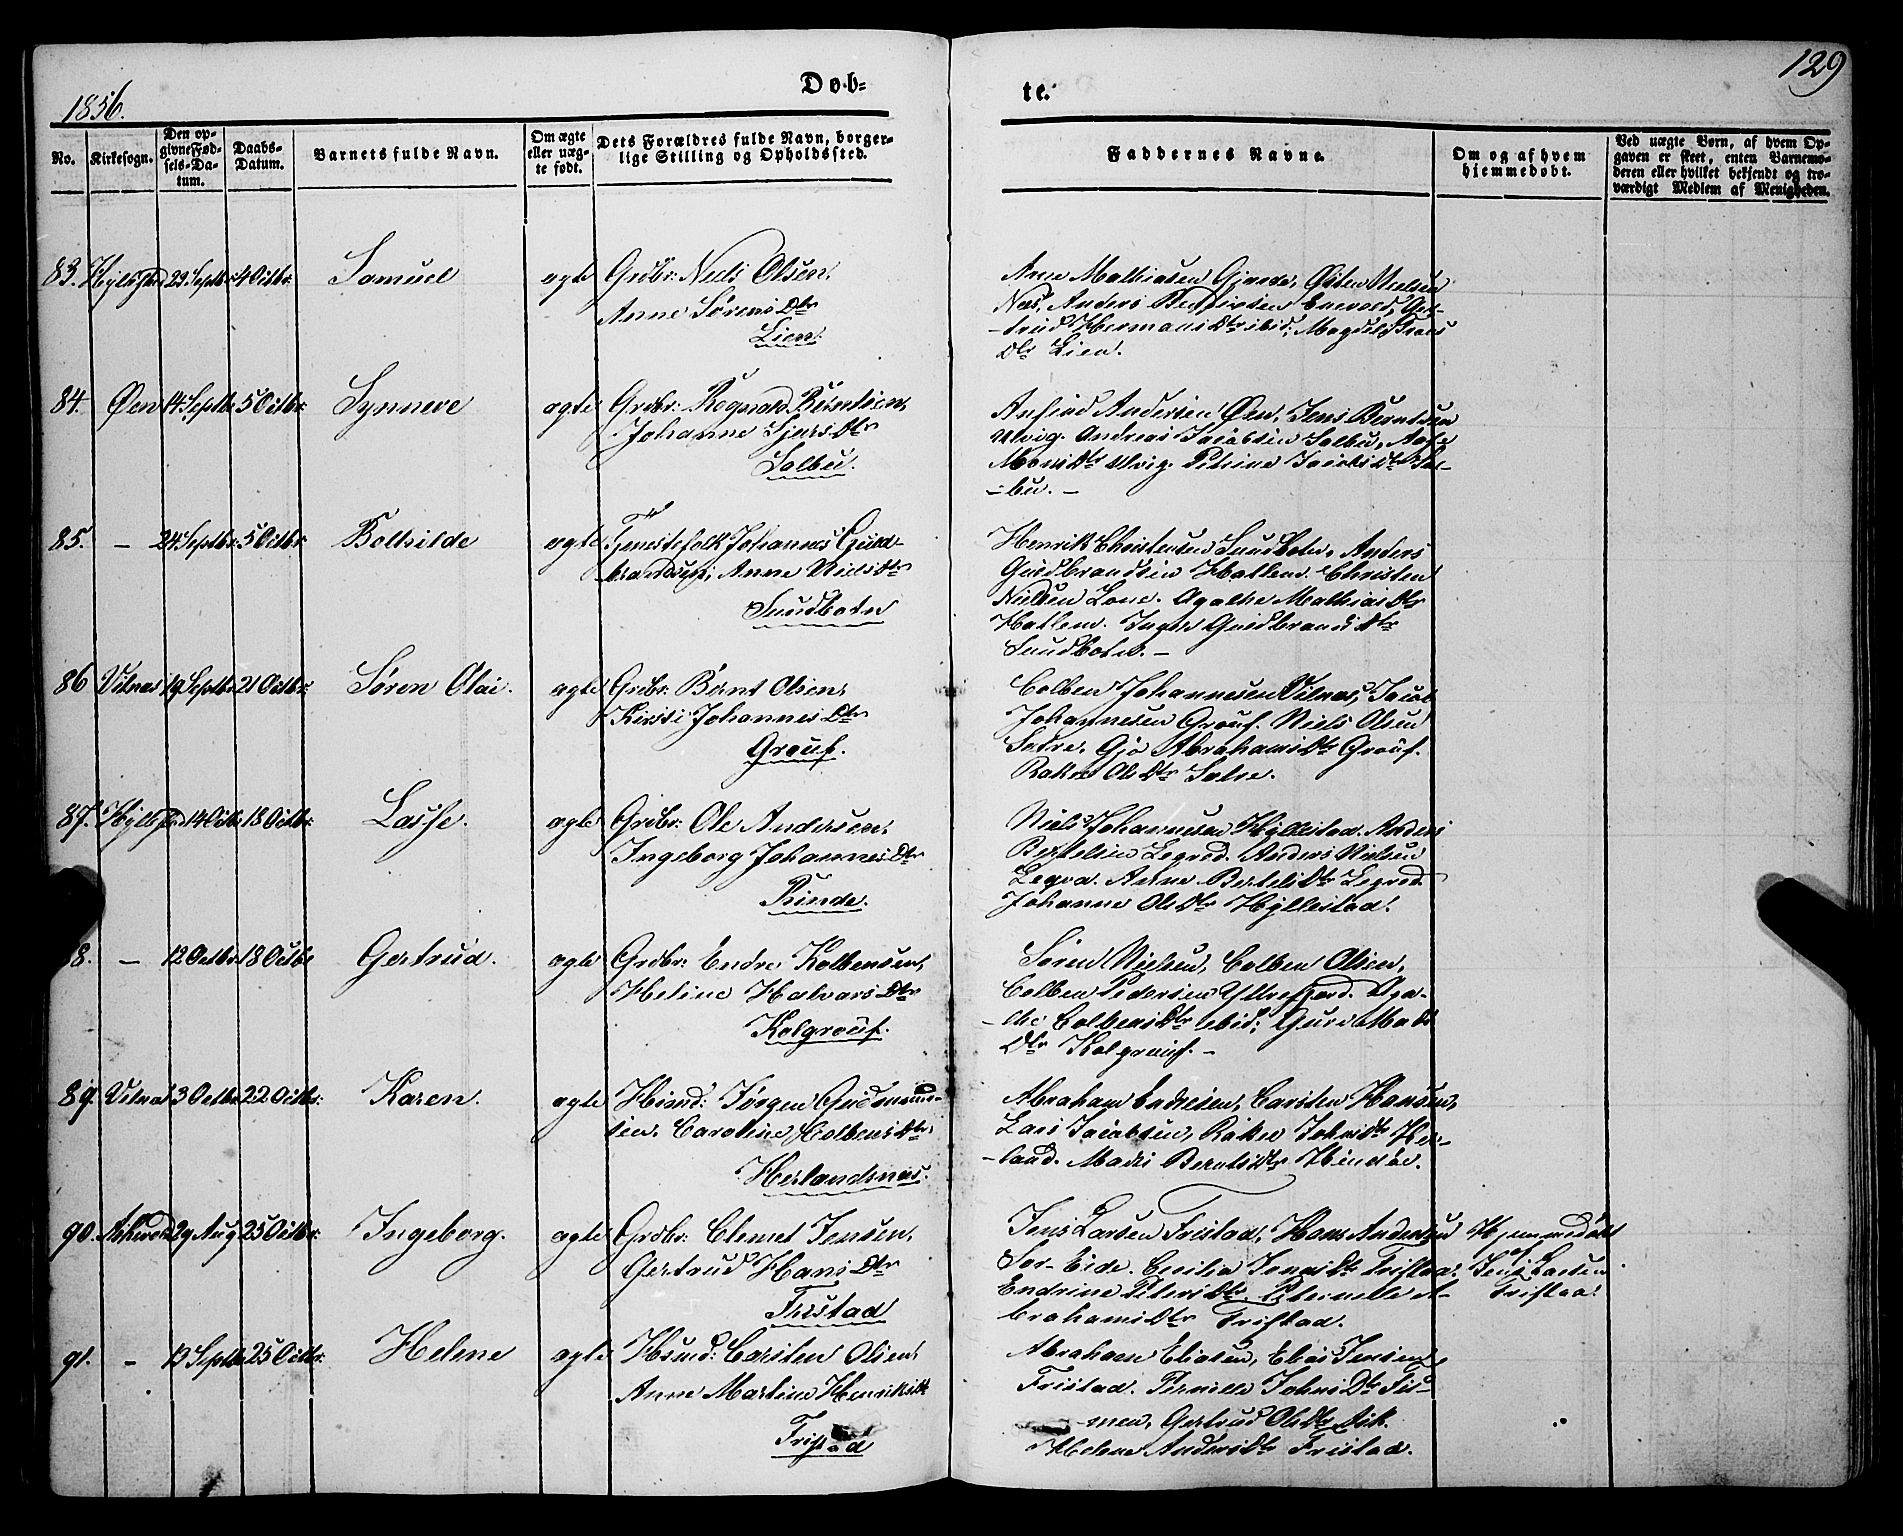 129
1856.
Døb-
te.
No.
Kirkesogn.
Den op-
givne Fød-
sels-Da-
tum.
Daabs-
Datum.
Barnets fulde Navn.
Om ægte
eller uæg-
te født.
Dets Forældres fulde Navn, borger-
lige Stilling og Opholdssted.
Faddernes Navne.
Om og af hvem
hjemmedøbt.
Ved uægte Børn, af hvem Op-
gaven er skeet, enten Barnemo-
deren eller hvilket bekjendt og tro-
værdigt Medlem af Menigheden.
83. 4 Octbr. Samuel ægte Grdbr: Niels Olsen,
Anne Sørens Dtr
Lien.
Anne Mathiasen Østen Nielsen
Næs, Anders
-trud Hermans Dtr ibid;
Dtr Lien.
84. Øen 14 Septbr 5 Octbr. Synneve ægte Grdbr: Berntsen,
Johanne Sjurs Dtr
Salbu.
Anfind Andersen Øen, Jens Berntsen
Ulvig. Andreas Jacobsen Salbu,
Mons Dtr Ulvig. Petrine Jacobs Dtr Sal-
-bu. -
85. - 24 Septbr. 5 Octbr Bolhilde ægte Tjenestefolk Johannes Guld-
brandsen, Anne Niels Dtr
Sundbotn
Henrik Christensen Sundbotn, Anders
Guldbrandsen Hatlem. Christen
Nielsen Lone. Agathe Mathias Dtr
Hatlem. Inger Guldbrands Dtr
Sundbotn. -
86 Vilnæs 19 Septbr 21 Octbr. Søren Olai. ægte Grdbr: Bernt Olsen,
Kirsti Johannes Dtr
Grouf.
Colben Johannesen Vilnæs, Jacob
Johannesen Grouf. Niels Olsen
Sætre. Gjø Abrahams Dtr Grouf.
Rakel Ols Dtr Sætre.
87. 14 Octbr 18 Octbr. Lasse. ægte Grdbr: Ole Andersen,
Ingeborg Johannes Dtr
Rinde.
Niels Johannesen Hyllestad. Anders
Bertelsen Anders Nielsen
Anne Bertels Dtr
Johanne Ols Dtr Hyllestad.
88. - 12 Octbr 18 Octbr Gertrud. ægte Grdbr: Endre Kolbensen,
Heline Halvors Dtr
Kolgrouf.
Søren Nielsen, Colben Olsen,
Colben Pedersen Ytrefjord. Aga-
-the Colbens Dtr ibid; Guri Mads
Dtr Kolgrouf. -
89. Vilnæs 3 Octbr 22 Octbr: Karen. ægte Huusmd: Jørgen Gudmund-
sen. Caroline Colbens Dtr,
Herlandsnæs.
Abraham Endresen, Carsten Hansen,
Lars Jacobsen, Rakel Johns Dtr Her-
-land. Madsi Bernts Dtr Hindøe.
90. Askevold 29 Aug 25 Octbr. Ingeborg. ægte Grdbr: Clemet Jensen,
Gertrud Hans Dtr
Fristad
Jens Larsen Fristad, Hans Andersen
Sør-Eide. Cecilia Jens Dtr Fristad.
Endrine Peters Dtr, Pternelle A-
brahams Dtr Fristad.
Hjemmedøbt
af
Jens Larsen
Fristad.
91. - 13 Septbr 25 Octbr. Helene ægte Huusmd: Carsten Olsen,
Anne Martine Henriks Dtr
Fristad
Abraham Eliasen, Elias Jensen
Fristad. Pernille Johns Dtr
men, Gertrud Ols Dtr Ask.
Helene Anders Dtr Fristad.